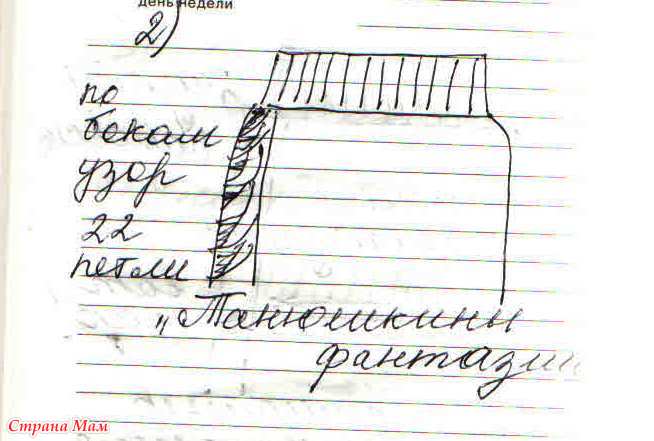 день недели
2)
по
бокам
узор
22
петли
"Танюшкины
фантазии
Страна Мам